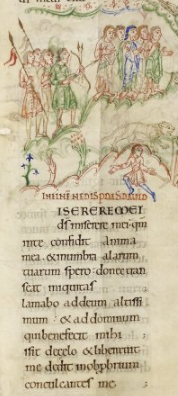 ISEREREMEI
ds miserere mei qm
inte confidit anima
mea & inumbra alarum
tuarum spero : donec tran
seat iniquitas
lamabo addeum altissi
mum : & addominum
quibenefecit mihi
isit decelo & liberauit
me dedit inobprobrium
conculcantes me ;